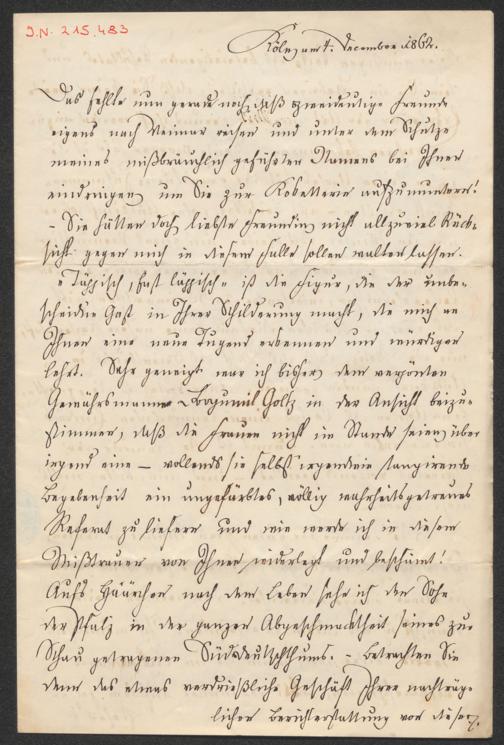 J.N. 215.483
Köln am 4. December 1862.
Das fehlte nun gerade noch, daß zweideutige Freunde
eigens nach Weimar reisen und unter dem Schutze
meines mißbräuchlich geführten Namens bei Ihnen
eindringen um Sie zur Koketterie aufzumuntern!
– Sie hätten doch liebste Freundin nicht allzuviel Rück-
sicht gegen mich in diesem Falle sollen walten lassen.
„Täppisch, fast läppisch" ist die Figur, die der unbe-
scheidne Gast in Ihrer Schilderung macht, die mich an
Ihnen eine neue Tugend erkennen und würdigen
lehrt. Sehr geneigt war ich bisher, dem verpönten
Gewährsmanne Bogumil Goltz in der Ansicht beizu-
stimmen, daß die Frauen nicht im Stande seien über
irgend eine – vollends sie selbst irgendwie tangirende
Begebenheit ein ungefärbtes, völlig wahrheitsgetreues
Referat zu liefern und wie werde ich in diesem
Mißtrauen von Ihnen widerlegt und beschämt!
Aufs Häärchen nach dem Leben sehe ich den Sohn
der Pfalz in der ganzen Abgeschmacktheit seines zur
Schau getragenen Süddeutschthums. – Betrachten Sie
denn das etwas verdrießliche Geschäft Ihrer nachträg-
lichen Berichterstattung von dieser